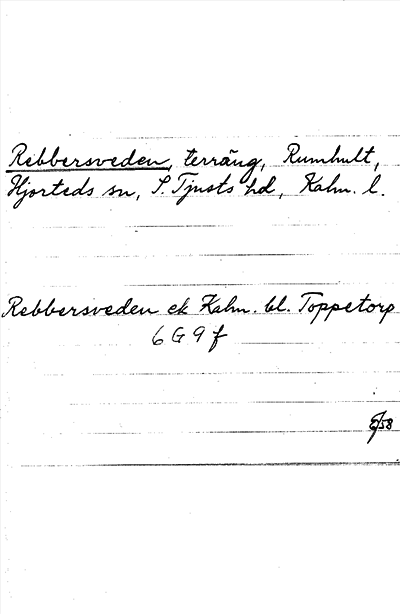 Rebbersveden, terräng, Rumhult,
Hjorteds sn, S. Tjusts hd, Kalm. l.
Rebbersveden ek Kalm. bl. Toppetorp
6 G 9 f